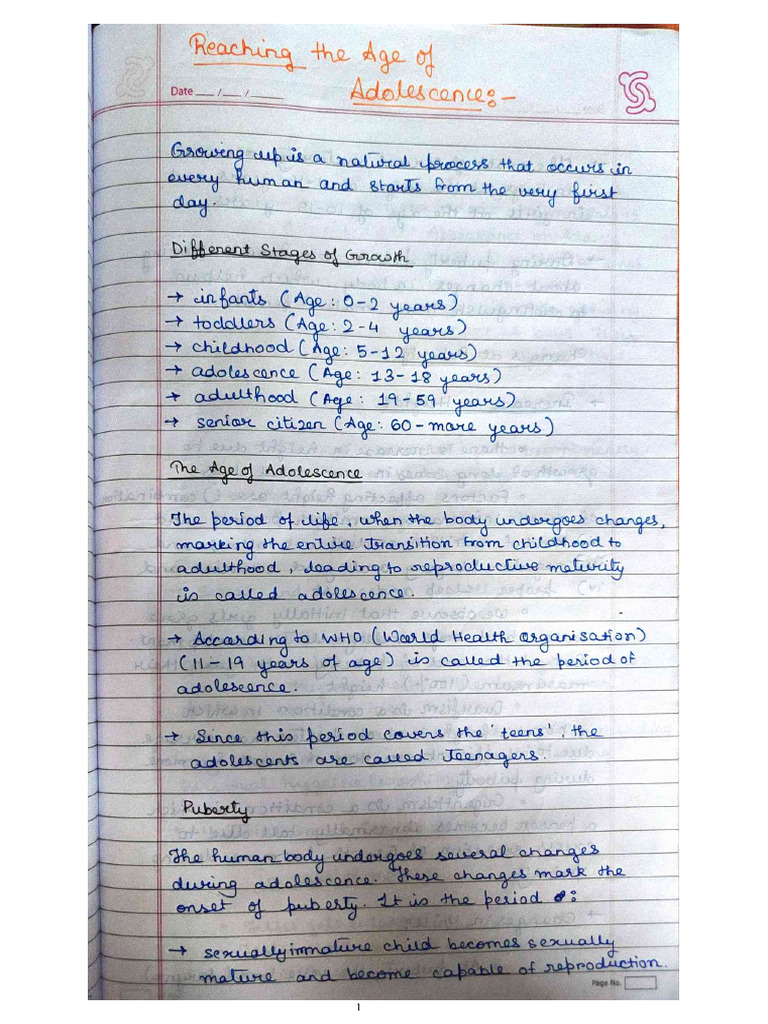 Reaching the Age of
Date __/__/____ Adolescence:-
Growing up is a natural process that occurs in
every human and starts from the very first
day.
Different Stages of Growth
→ infants (Age: 0-2 years)
→ toddlers (Age: 2-4 years)
→ childhood (Age: 5-12 years)
→ adolescence (Age: 13-18 years)
→ adulthood (Age: 19-59 years)
→ senior citizen (Age: 60-more years)
The Age of Adolescence
The period of life, when the body undergoes changes,
marking the entire transition from childhood to
adulthood, leading to reproductive maturity
is called adolescence.
→ According to WHO (World Health Organisation)
(11-19 years of age) is called the period of
adolescence.
→ Since this period covers the 'teens', the
adolescents are called Teenagers.
Puberty
The human body undergoes several changes
during adolescence. These changes mark the
onset of puberty. It is the period :
→ sexually immature child becomes sexually
mature and become capable of reproduction.
Page No.
1